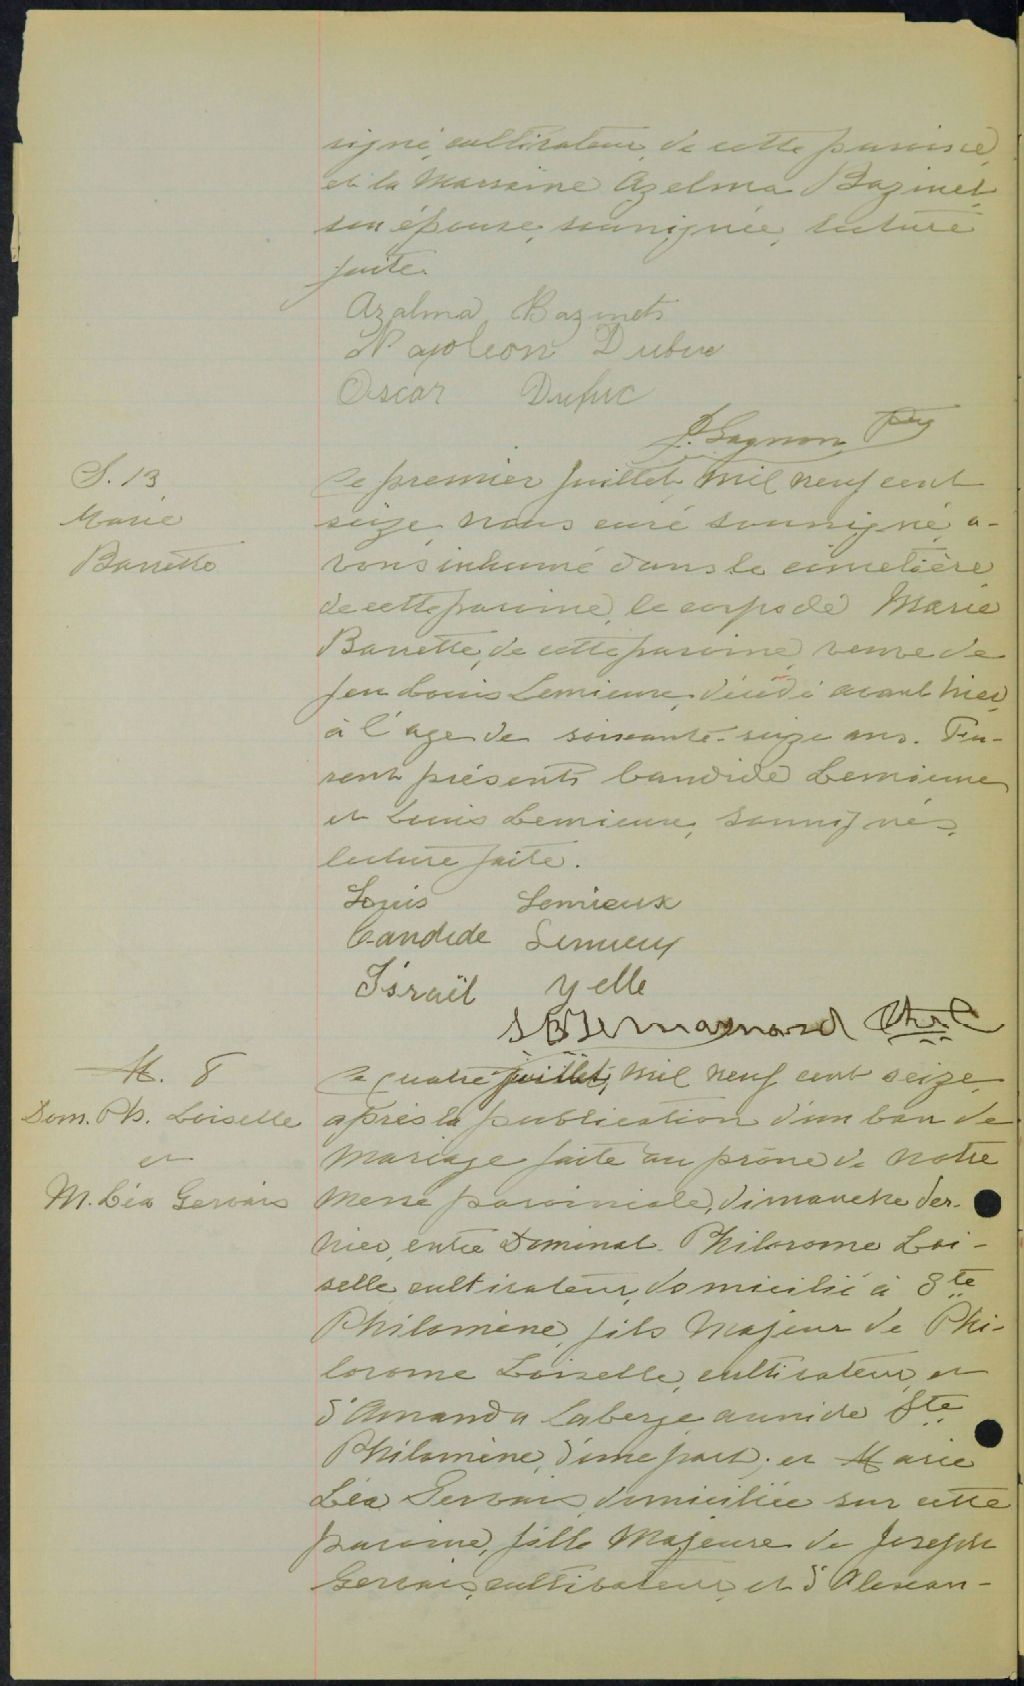 signé, cultivateur, de cette paroisse,
et la Marraine Azelma Bazinet
son épouse, soussignée, lecture
faite.
Azalma Bazinets
Napoleon Dubuc
Oscar Dubuc
J. Gagnon Ptre
S. 13
Marie
Barrette
Ce premier juillet, mil neuf cent
seize, nous curé soussigné, a-
vons inhumé dans le cimetière
de cette paroisse, le corps de Marie
Barrette, de cette paroisse, veuve de
feu Louis Lemieux, décédé avant hier,
à l'age de soixante-seize ans. Fu-
rent présents Candide Lemieux
et Louis Lemieux, soussignés,
lecture faite.
Louis Lemieux
Candide Lemieux
Israël Yelle
M. 8
Dom. Ph. Loiselle
et
M. Léa Gervais
Ce quatre juillet, mil neuf cent seize,
après la publication d'un ban de
mariage faite au prône de notre
messe paroissiale, dimanche der-
nier, entre Dominat Philorome Loi-
selle, cultivateur, domicilié à Ste
Philomène, fils majeur de Phi-
lorome Loiselle, cultivateur, et
d'Amanda Laberge aussi de Ste
Philomène, d'une part; et Marie
Léa Gervais, domiciliée sur cette
paroisse, fille majeure de Joseph
Gervais, cultivateur, et d'Alexan-